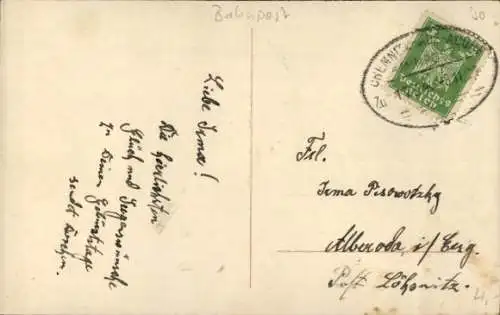 Bahnpost
Liebe Irma!
Die herzlichsten
Glück und Segenswünsche
zu Deinem Geburtstage
sendet
CHEMNITZ
Deutsches
Reich
Frl.
Irma Pisowotzky
Alberoda i/Erzg.
Post Lößnitz.